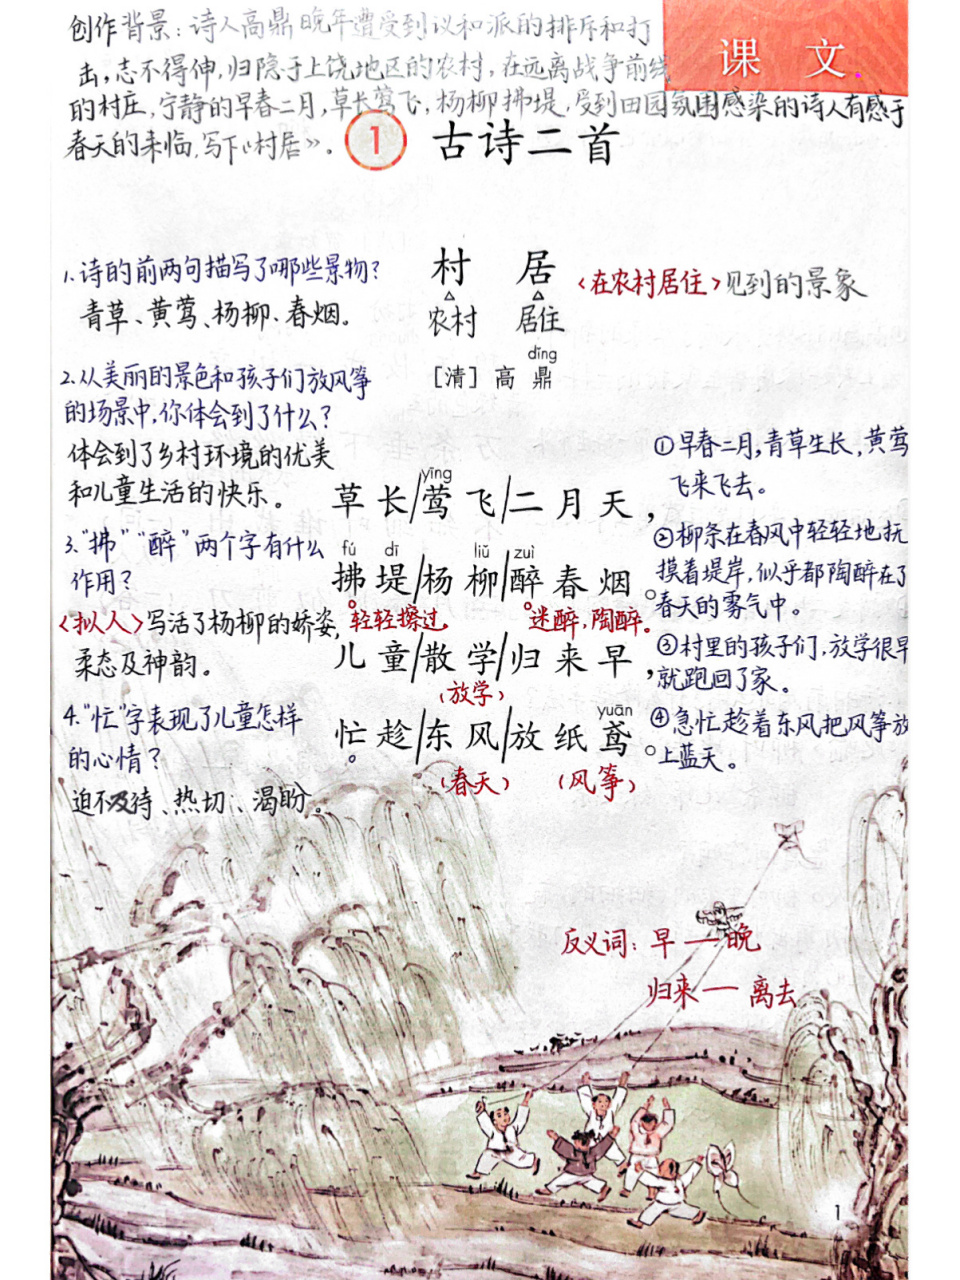 创作背景：诗人高鼎晚年遭受到议和派的排斥和打
击，志不得伸，归隐于上饶地区的农村，在远离战争前线
的村庄，宁静的早春二月，草长莺飞，杨柳拂堤，受到田园氛围感染的诗人有感于
春天的来临，写下《村居》。
课 文
1 古诗二首
村 居
农村 居住
<在农村居住>见到的景象
dǐng
［清］高 鼎
1.诗的前两句描写了哪些景物？
青草、黄莺、杨柳、春烟。
2.从美丽的景色和孩子们放风筝
的场景中，你体会到了什么？
体会到了乡村环境的优美
和儿童生活的快乐。
3.“拂”“醉”两个字有什么
作用？
<拟人>写活了杨柳的娇姿，
柔态及神韵。
4.“忙”字表现了儿童怎样
的心情？
迫不及待、热切、渴盼。
yīng
草长/莺飞/二月天，
fú dī liǔ zuì
拂堤/杨柳/醉春烟。
轻轻擦过。 迷醉，陶醉。
儿童/散学/归来早，
(放学)
yuān
忙趁/东风/放纸鸢。
(春天) (风筝)
①早春二月，青草生长，黄莺
飞来飞去。
②柳条在春风中轻轻地抚
摸着堤岸，似乎都陶醉在了
春天的雾气中。
③村里的孩子们，放学很早
就跑回了家。
④急忙趁着东风把风筝放
上蓝天。
反义词：早—晚
归来—离去
1